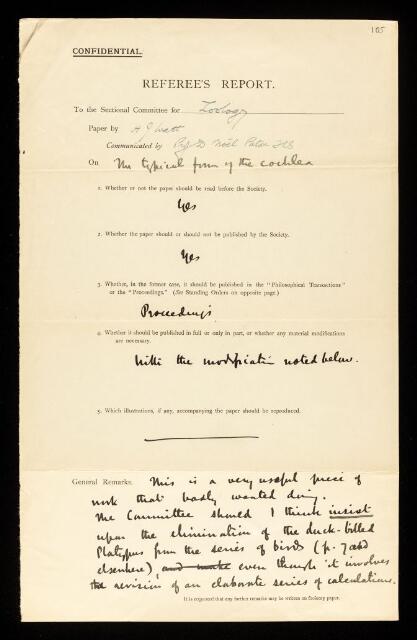 105
CONFIDENTIAL.
REFEREE'S REPORT.
To the Sectional Committee for Zoology
Paper by H J Watt
Communicated by Prof D Noël Paton FRS
On The typical form of the cochlea
1. Whether or not the paper should be read before the Society.
Yes
2. Whether the paper should or should not be published by the Society.
Yes
3. Whether, in the former case, it should be published in the "Philosophical Transactions"
or the "Proceedings." (See Standing Orders on opposite page.)
Proceedings
4. Whether it should be published in full or only in part, or whether any material modifications
are necessary.
With the modification noted below.
5. Which illustrations, if any, accompanying the paper should be reproduced.
General Remarks. This is a very useful piece of
work that badly wanted doing.
The Committee should I think insist
upon the elimination of the duck-billed
Platypus from the series of birds (p. 7 and
elsewhere), and make even though it involves
the revision of an elaborate series of calculations.
It is requested that any further remarks may be written on foolscap paper.